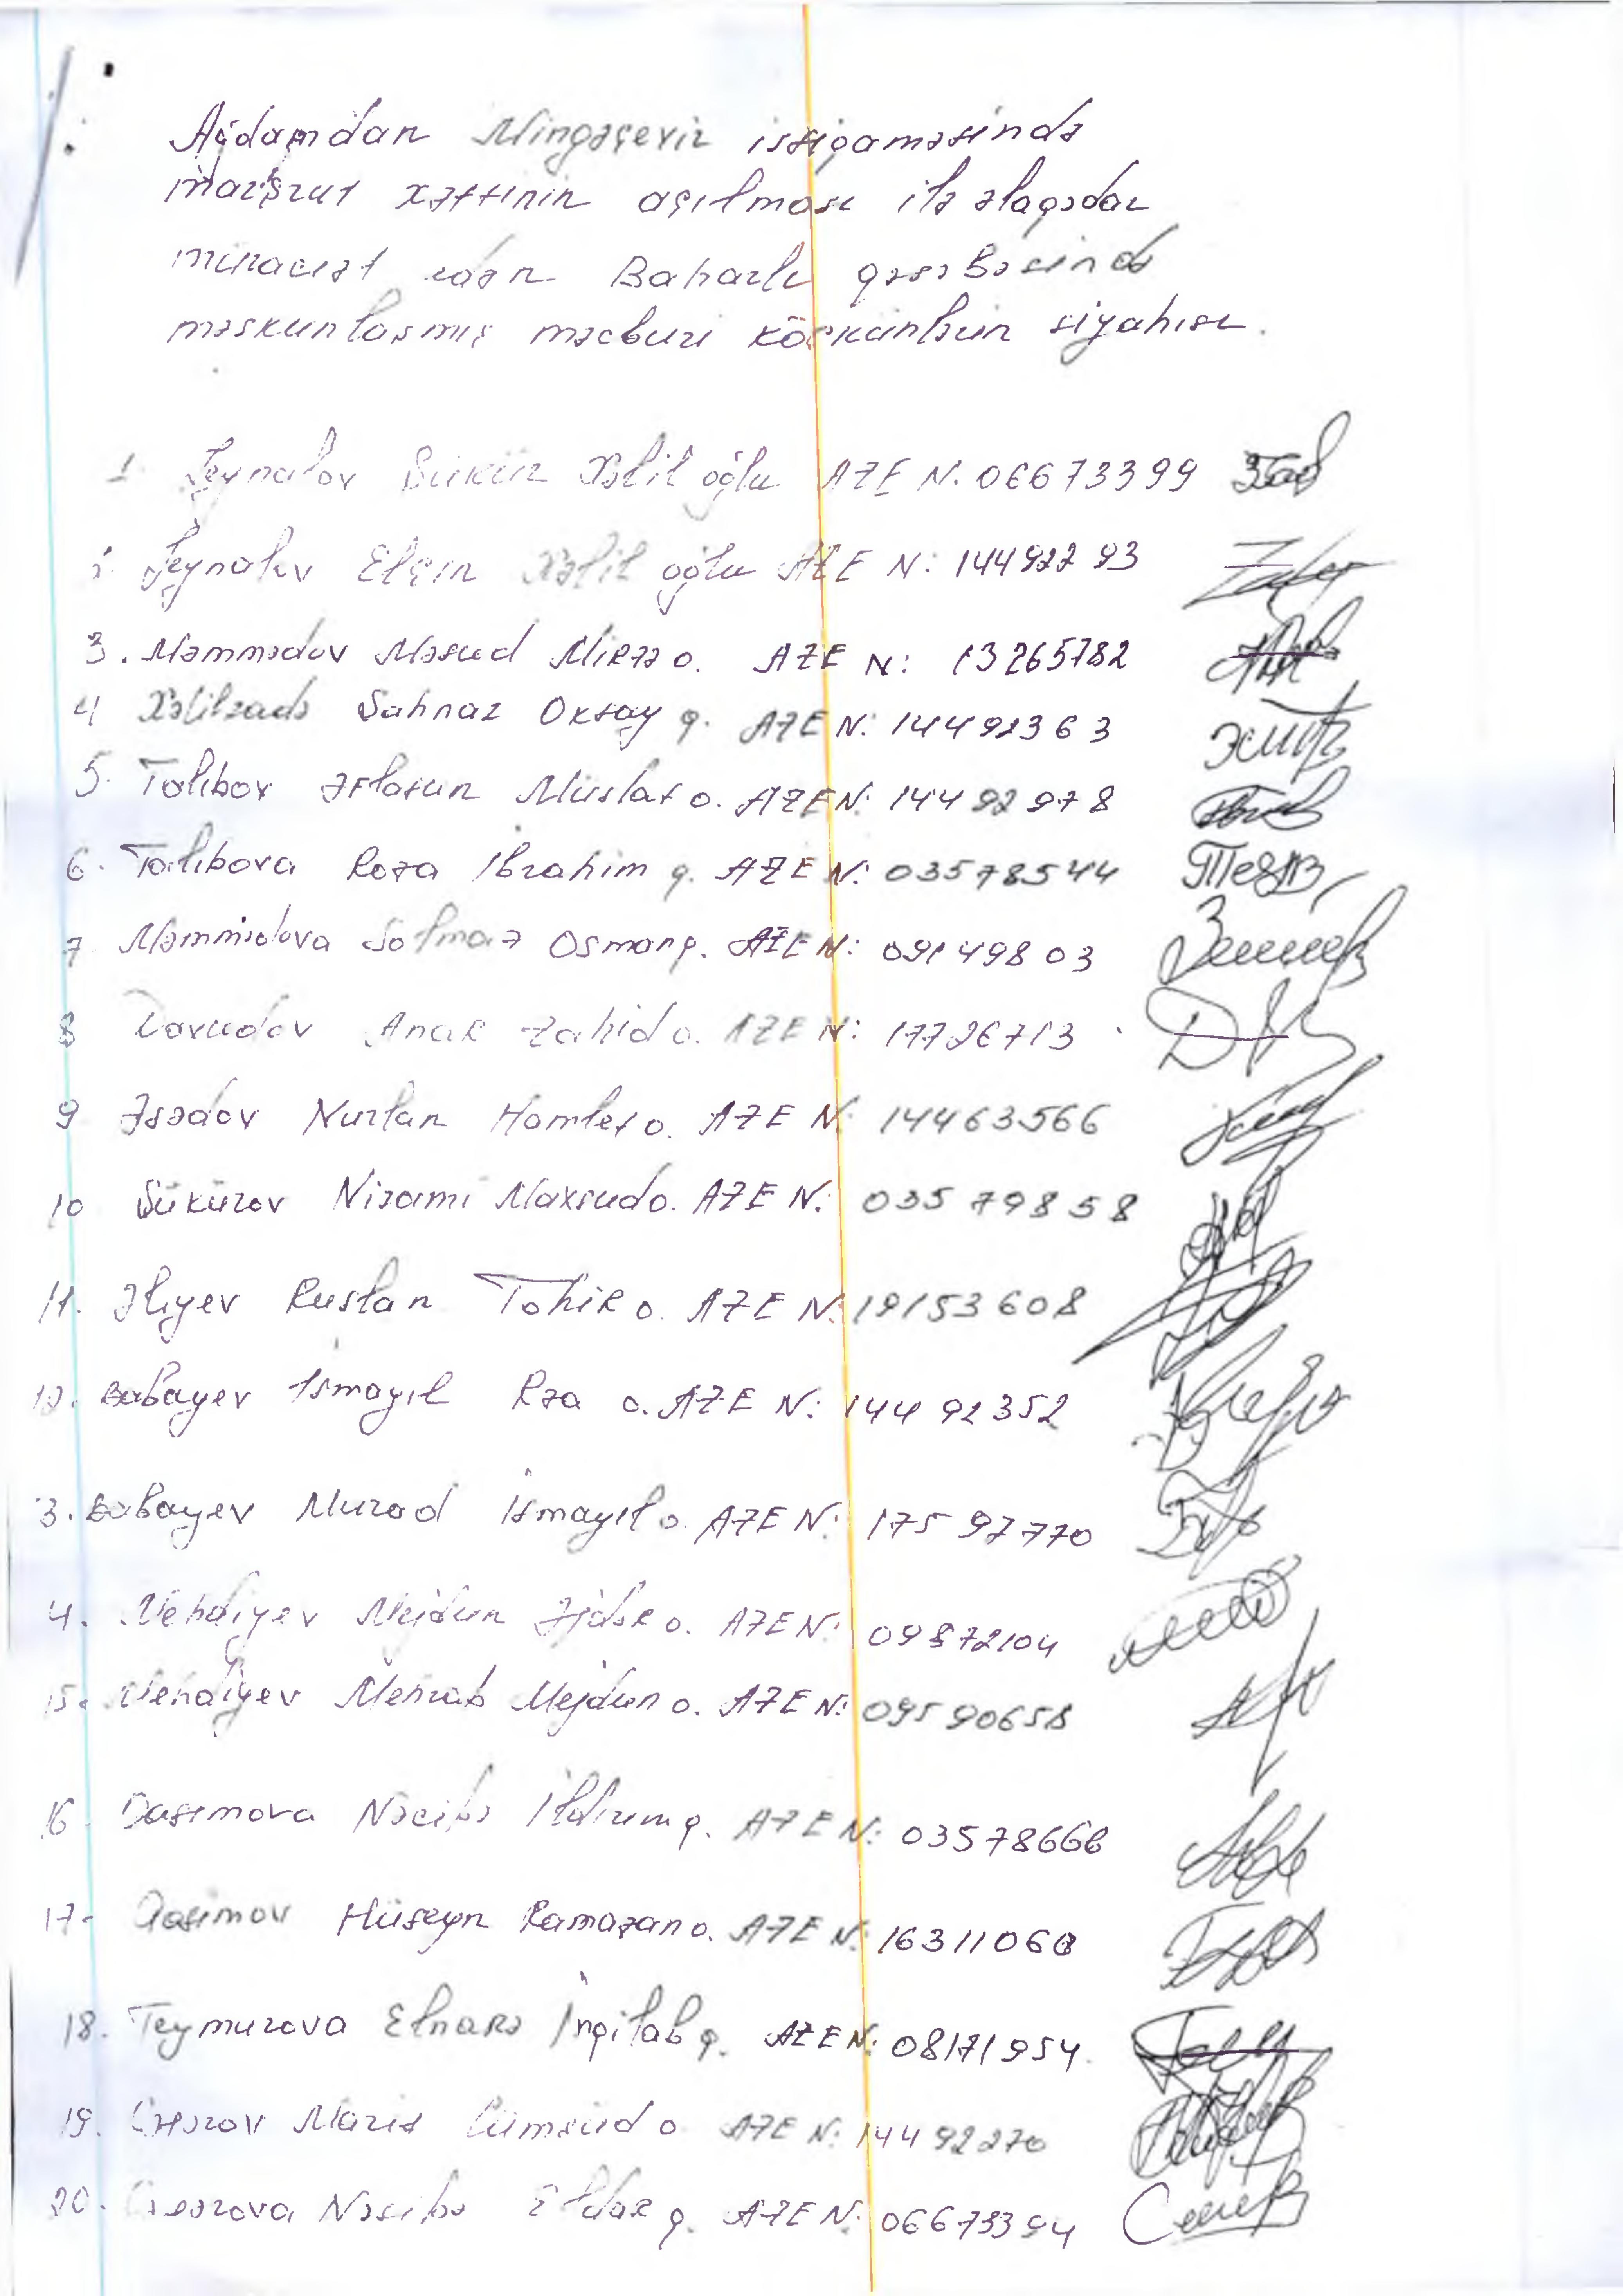 Ağdamdan Mingəçevir istiqamətində
marşrut xəttinin açılması ilə əlaqədar
müraciət edən Baharlı qəsəbəsində
məskunlaşmış məcburi köçkünlərin siyahısı.
1. Zeynalov Şükür Xəlil oğlu AZE N. 06673399
2. Zeynalov Elçin Xəlil oğlu AZE N: 14492293
3. Məmmədov Məsud Mirzə o. AZE N: 13265782
4 Xəlilzadə Şahnaz Oktay q. AZE N: 14492363
5. Talıbov Əflatun Müslat o. AZE N: 14492978
6. Talıbova Roza İbrahim q. AZE N: 03578544
7 Məmmədova Solmaz Osman q. AZE N: 09149803
8 Davudov Anar Zahid o. AZE N: 17726713
9 Əsədov Nurlan Hamlet o. AZE N: 14463566
10 Şükürov Nizami Maxsud o. AZE N: 03579858
11. Əliyev Ruslan Tahir o. AZE N: 19153608
12. Babayev İsmayıl Rza o. AZE N: 14492352
3. Babayev Murad İsmayıl o. AZE N: 17597770
4. Mehdiyev Mejdun Əjdər o. AZE N: 09872104
15. Mehdiyev Mehrab Mejdun o. AZE N: 09590658
16 Qasımova Nəcibə İldırım q. AZE N: 03578666
17- Qasımov Hüseyn Ramazan o. AZE N: 16311060
18. Teymurova Elnarə İnqilab q. AZE N: 08171954.
19. Marit Cümşüd o AZE N: 14492270
20. Nəcibə Eldar q. AZE N: 06673394